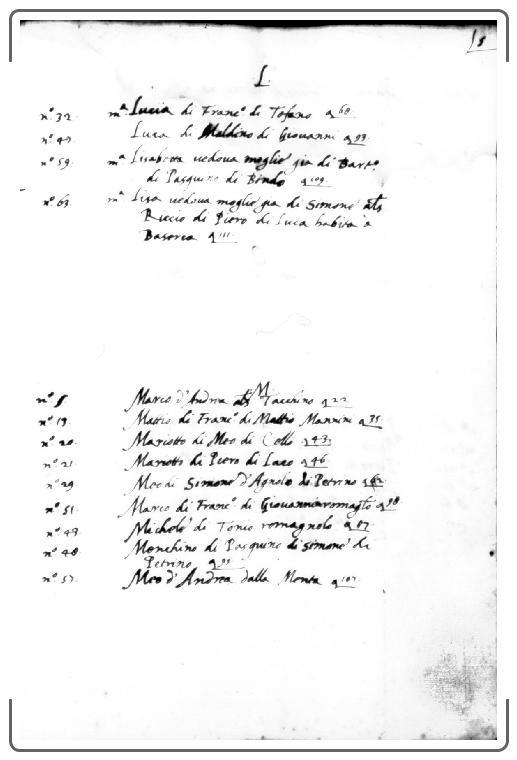 15
L.
nº. 32. mª Lucia di Francº di Tofano a 68.
nº. 47. Luca di Maldino di Giovanni a 93.
nº. 59. mª Lisabetta vedova moglie gia di Bartº.
di Pasquino di Bindo a 109.
nº. 63. mª Lisa vedova moglie gia di Simone als
Riccio di Piero di Luca habita a
a 111.
M
nº. Marco d'Andrea als Tacchino a 22.
nº. 19. Mattio di Francº di Mattio Mannini a 35.
nº. 20. Mariotto di Meo di Cello a 43.
nº. 21. Mariotto di Piero di a 46
nº. 29. Meo di Simone d'Agnolo di Petrino a 62
nº. 51. Marco di Francº di Giovanni romagº a 98
nº. 49. Michele di Tonio romagnolo a
nº. 48. Menchino di Pasquino di Simone di
Petrino a
nº. 57. Meo d'Andrea dalla Monta a 107.